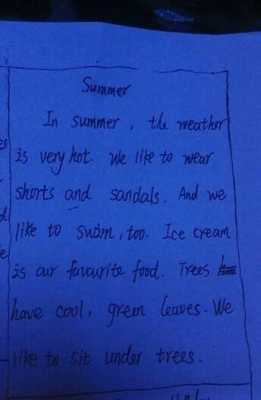 Summer
In summer, the weather
is very hot. We like to wear
shorts and sandals. And we
like to swim, too. Ice cream
is our favourite food. Trees
have cool, green leaves. We
like to sit under trees.